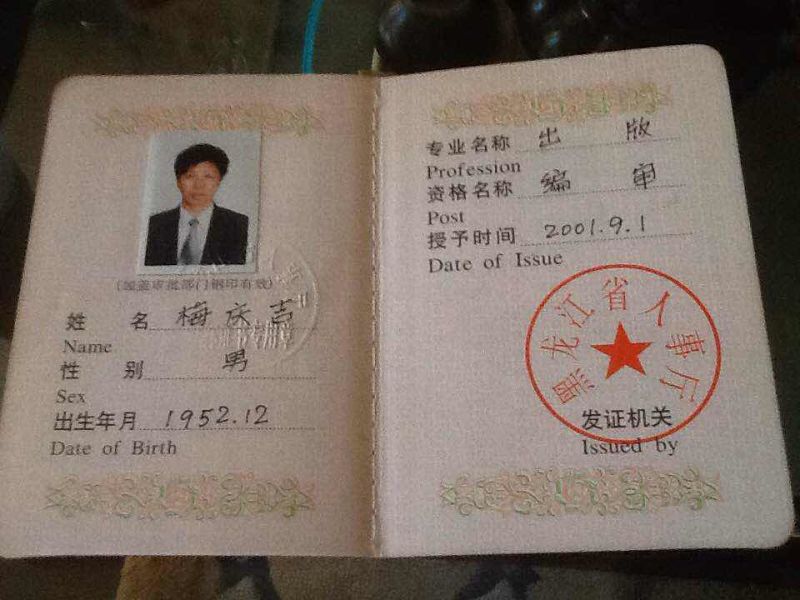 (加盖审批部门钢印有效)
姓 名 梅庆吉
Name
性 别 男
Sex
出生年月 1952.12
Date of Birth
专业名称 出 版
Profession
资格名称 编 审
Post
授予时间 2001.9.1
Date of Issue
黑龙江省人事厅
发证机关
Issued by